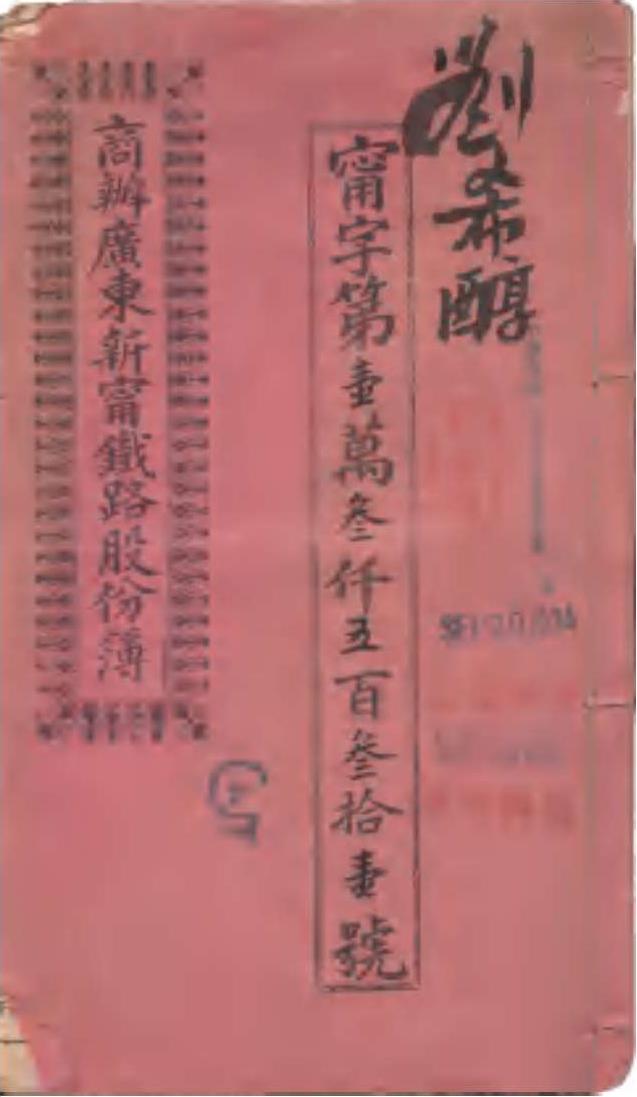 劉希醇
甯字第壹萬叁仟五百叁拾壹號
商辦廣東新甯鐵路股份簿